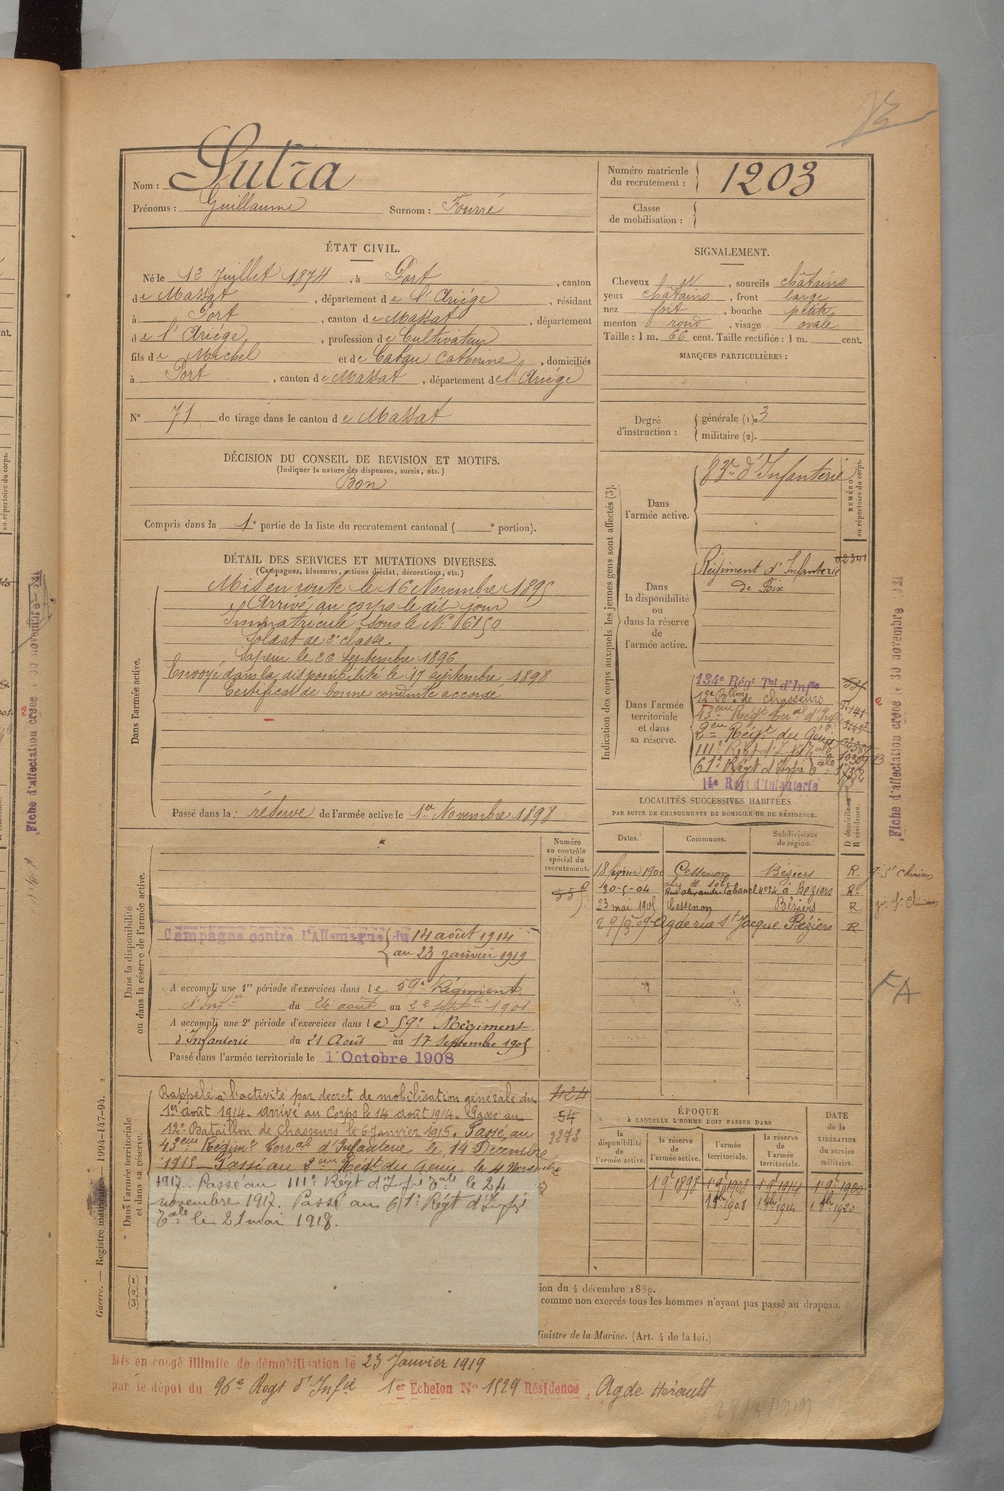 Nom : Sutra
Prénoms : Guillaume Surnom : Fourré
Numéro matricule du recrutement : 1203
Classe de mobilisation :
ÉTAT CIVIL.
Né le 12 Juillet 1874, à Port, canton
de Massat, département de l'Ariége, résidant
à Port, canton de Massat, département
de l'Ariége, profession de Cultivateur
fils de Michel et de Catherine, domiciliés
à Port, canton de Massat, département de l'Ariége
N° 71 de tirage dans le canton de Massat
SIGNALEMENT.
Cheveux, sourcils châtains
yeux châtains, front large
nez fort, bouche petite
menton rond, visage ovale
Taille : 1 m. 66 cent. Taille rectifiée : 1 m. cent.
MARQUES PARTICULIÈRES :
Degré d'instruction : générale (1). 3
militaire (2).
DÉCISION DU CONSEIL DE REVISION ET MOTIFS.
(Indiquer la nature des dispenses, sursis, etc.)
Bon
Compris dans la 1e partie de la liste du recrutement cantonal ( e portion).
DÉTAIL DES SERVICES ET MUTATIONS DIVERSES.
(Campagnes, blessures, actions d'éclat, décorations, etc.)
Dans l'armée active.
Mis en route le 16 Novembre 1895
Arrivé au corps le dit jour
Immatriculé sous le N° 6150
Soldat de 2e classe.
Sapeur le 26 septembre 1896
Envoyé dans la disponibilité le 17 septembre 1898
Certificat de bonne conduite accordé
Passé dans la réserve de l'armée active le 1er Novembre 1898
Indication des corps auxquels les jeunes gens sont affectés (3).
NUMÉRO au répertoire du corps.
Dans l'armée active.
83e d'Infanterie
Dans la disponibilité ou dans la réserve de l'armée active.
Régiment d'Infanterie
de Foix
02341
Dans l'armée territoriale et dans sa réserve.
134e Régt Tal d'Infie
12e Bllon de chasseurs
43eme Régt terral d'Inf
2eme Régt du Génie
111e Régt d'Infie Tale
61e Régt d'Infie Tale
14e Régt d'Infanterie
LOCALITÉS SUCCESSIVES HABITÉES
PAR SUITE DE CHANGEMENTS DE DOMICILE OU DE RÉSIDENCE.
Dates. Communes. Subdivisions de région. D domicile. R résidence.
18 février 1900 Cessenon Béziers R.
30-5-04 à Béziers R
23 mai 1905 Cessenon Béziers R
Agde rue St Jacques Béziers R
Numéro au contrôle spécial du recrutement.
Dans la disponibilité ou dans la réserve de l'armée active.
Campagne contre l'Allemagne du 14 août 1914
au 23 janvier 1919
A accompli une 1re période d'exercices dans le 59e Régiment
d'Infie du 26 août au 22 septbre 1901
A accompli une 2e période d'exercices dans le 59e Régiment
d'Infanterie du 21 Août au 17 Septembre 1905
Passé dans l'armée territoriale le 1 Octobre 1908
Dans l'armée territoriale et dans sa réserve.
Rappelé à l'activité par décret de mobilisation générale du
1er août 1914. arrivé au Corps le 14 août 1914. Passé au
12e Bataillon de Chasseurs le 6 janvier 1915. Passé au
43eme Régiment Terral d'Infanterie le 19 Décembre
1915 – Passé au 2eme Régt du Génie le 4 Novembre
1917. Passé au 111e Régt d'Infie Tale le 24
novembre 1917. Passé au 61e Régt d'Infie
Tale le 21 mai 1918.
424
54
3273
ÉPOQUE
À LAQUELLE L'HOMME DOIT PASSER DANS
la disponibilité de l'armée active.
la réserve de l'armée active.
l'armée territoriale.
la réserve de l'armée territoriale.
DATE DE LA LIBÉRATION DU SERVICE militaire.
1 9bre 1898 1 9bre 1908 1 9bre 1914 1 9bre 1920
1 8bre 1908 1 8bre 1914 1 8bre 1920
tion du 4 décembre 1889.
comme non exercés tous les hommes n'ayant pas passé au drapeau.
Ministre de la Marine. (Art. 4 de la loi.)
Mis en congé illimité de démobilisation le 23 Janvier 1919
par le dépôt du 96e Regt d'Infie 1er Echelon N° 1529 Résidence, Agde Hérault
FA